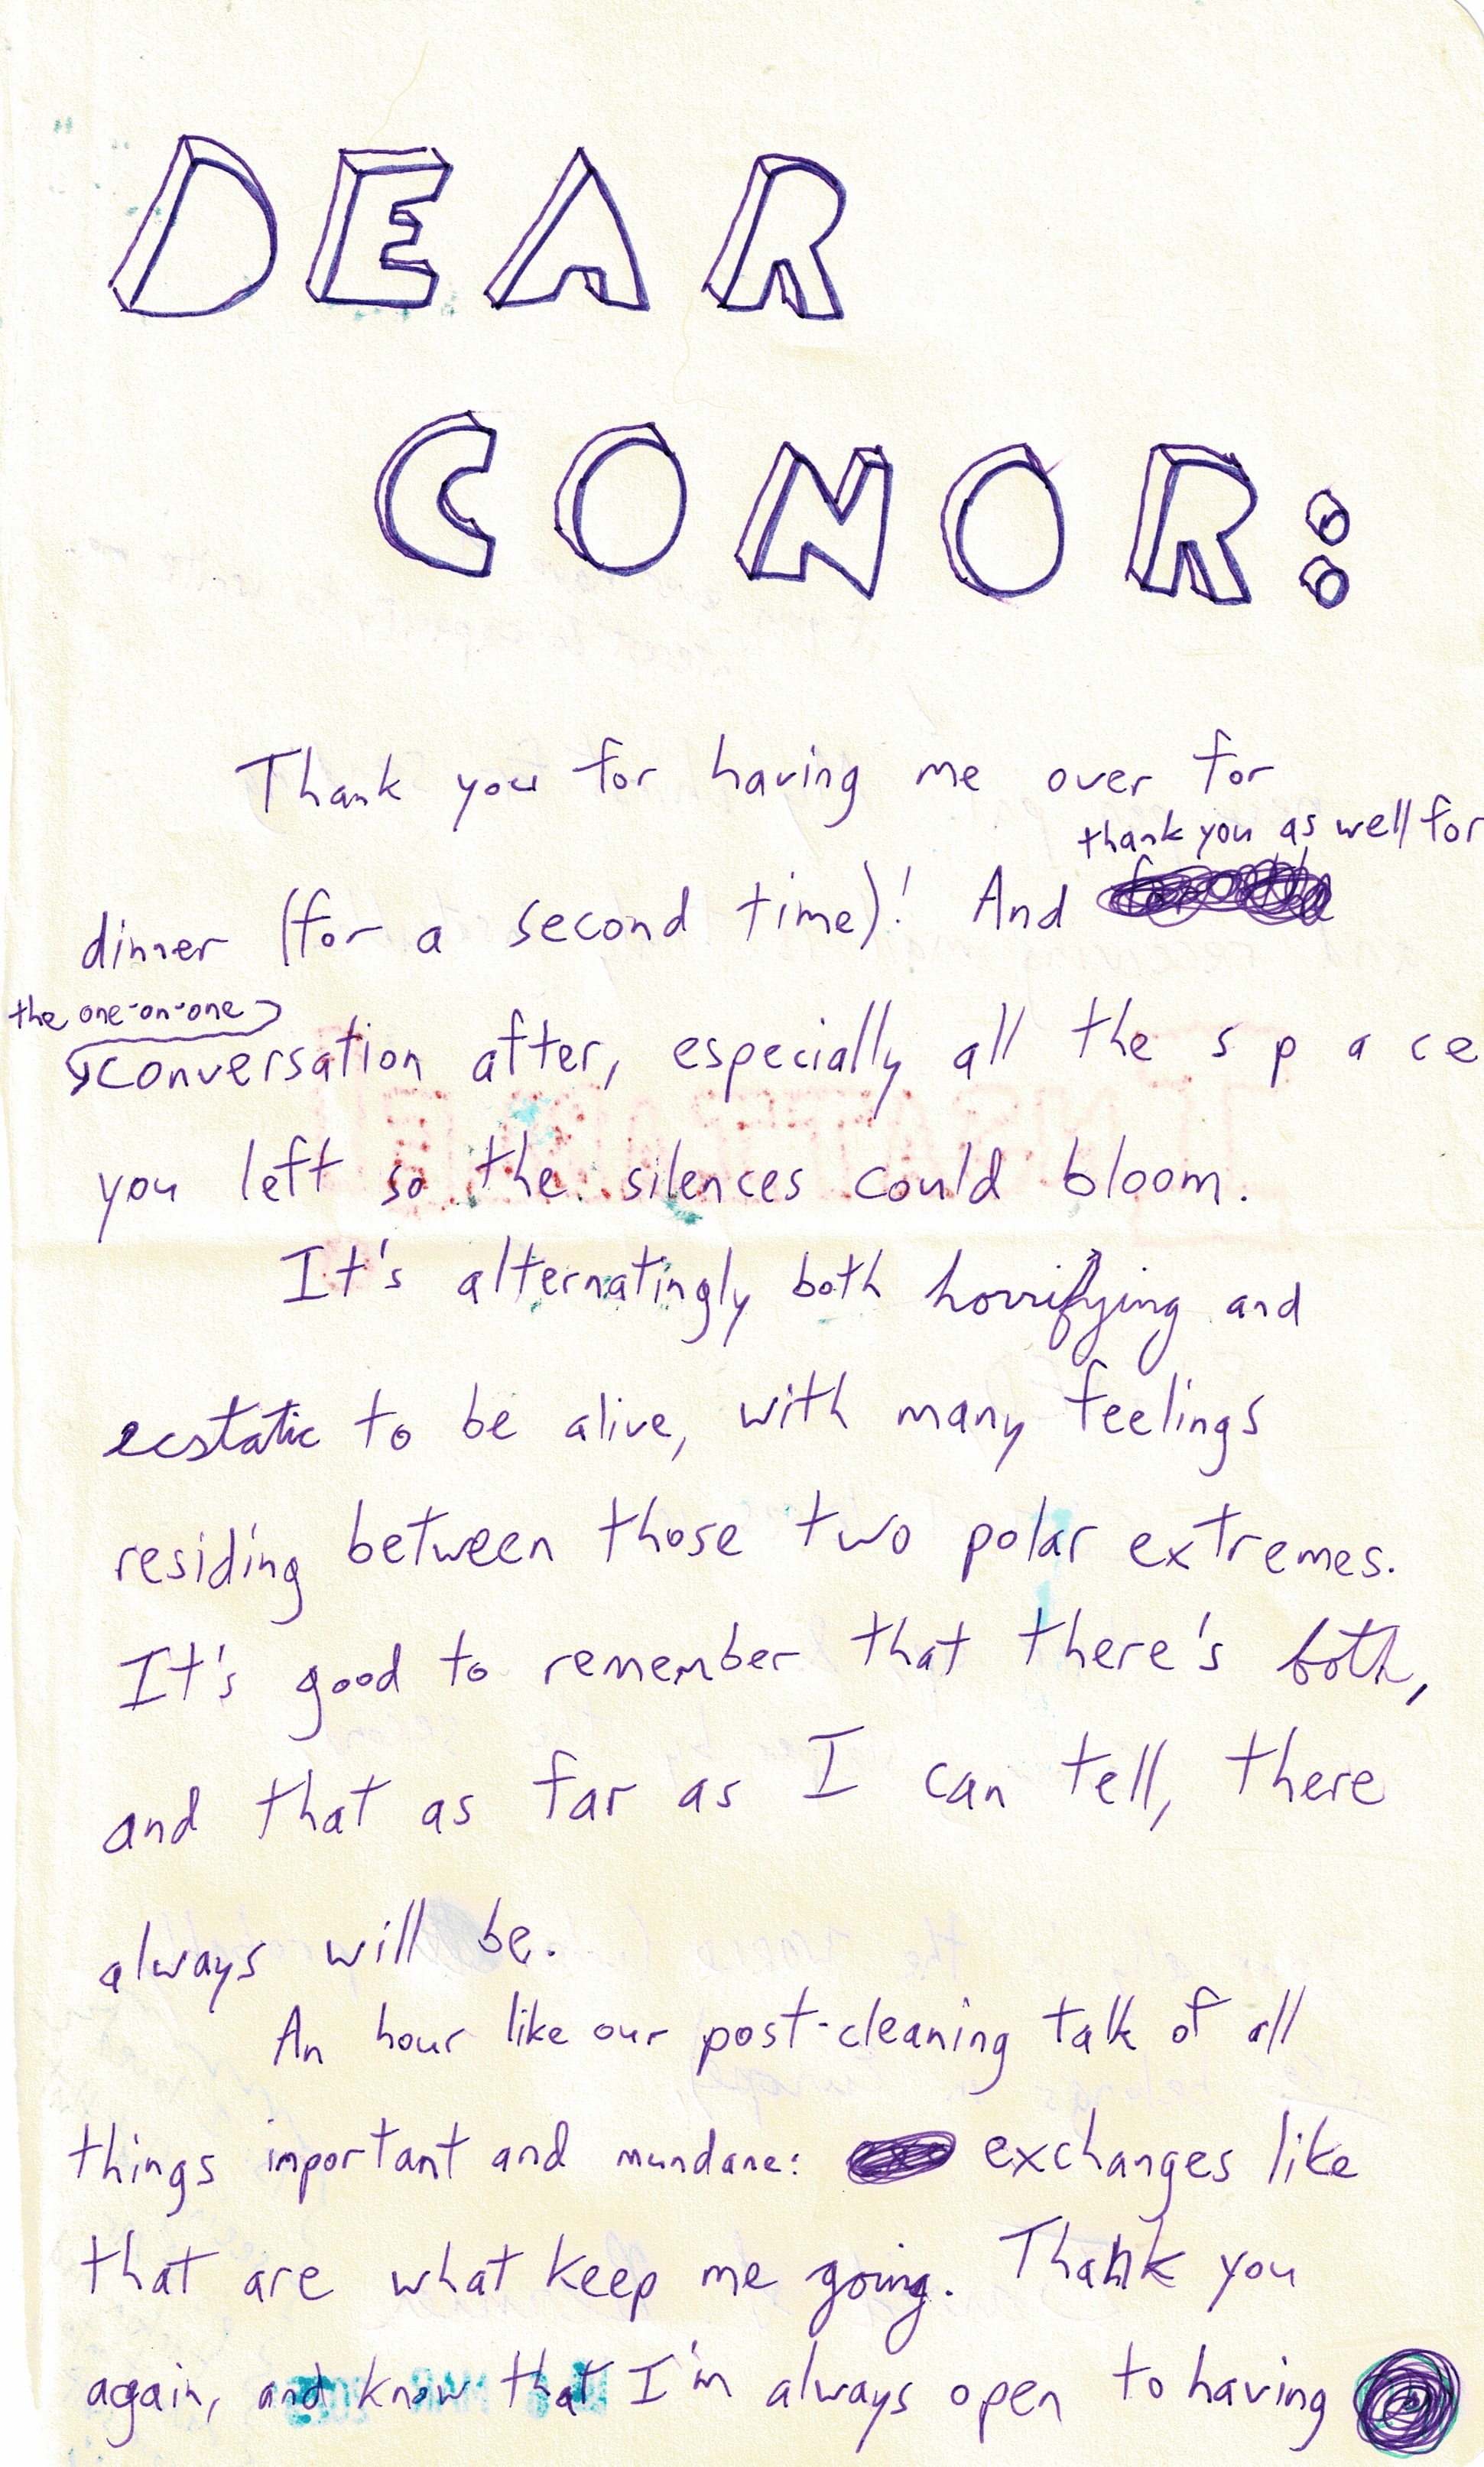 DEAR
CONOR:
Thank you for having me over for
thank you as well for
dinner (for a second time)! And
the one-on-one
conversation after, especially all the s p a ce
you left so the silences could bloom.
It's alternatingly both horrifying and
ecstatic to be alive, with many feelings
residing between those two polar extremes.
It's good to remember that there's both,
and that as far as I can tell, there
always will be.
An hour like our post-cleaning talk of all
things important and mundane: exchanges like
that are what keep me going. Thank you
again, and know that I'm always open to having